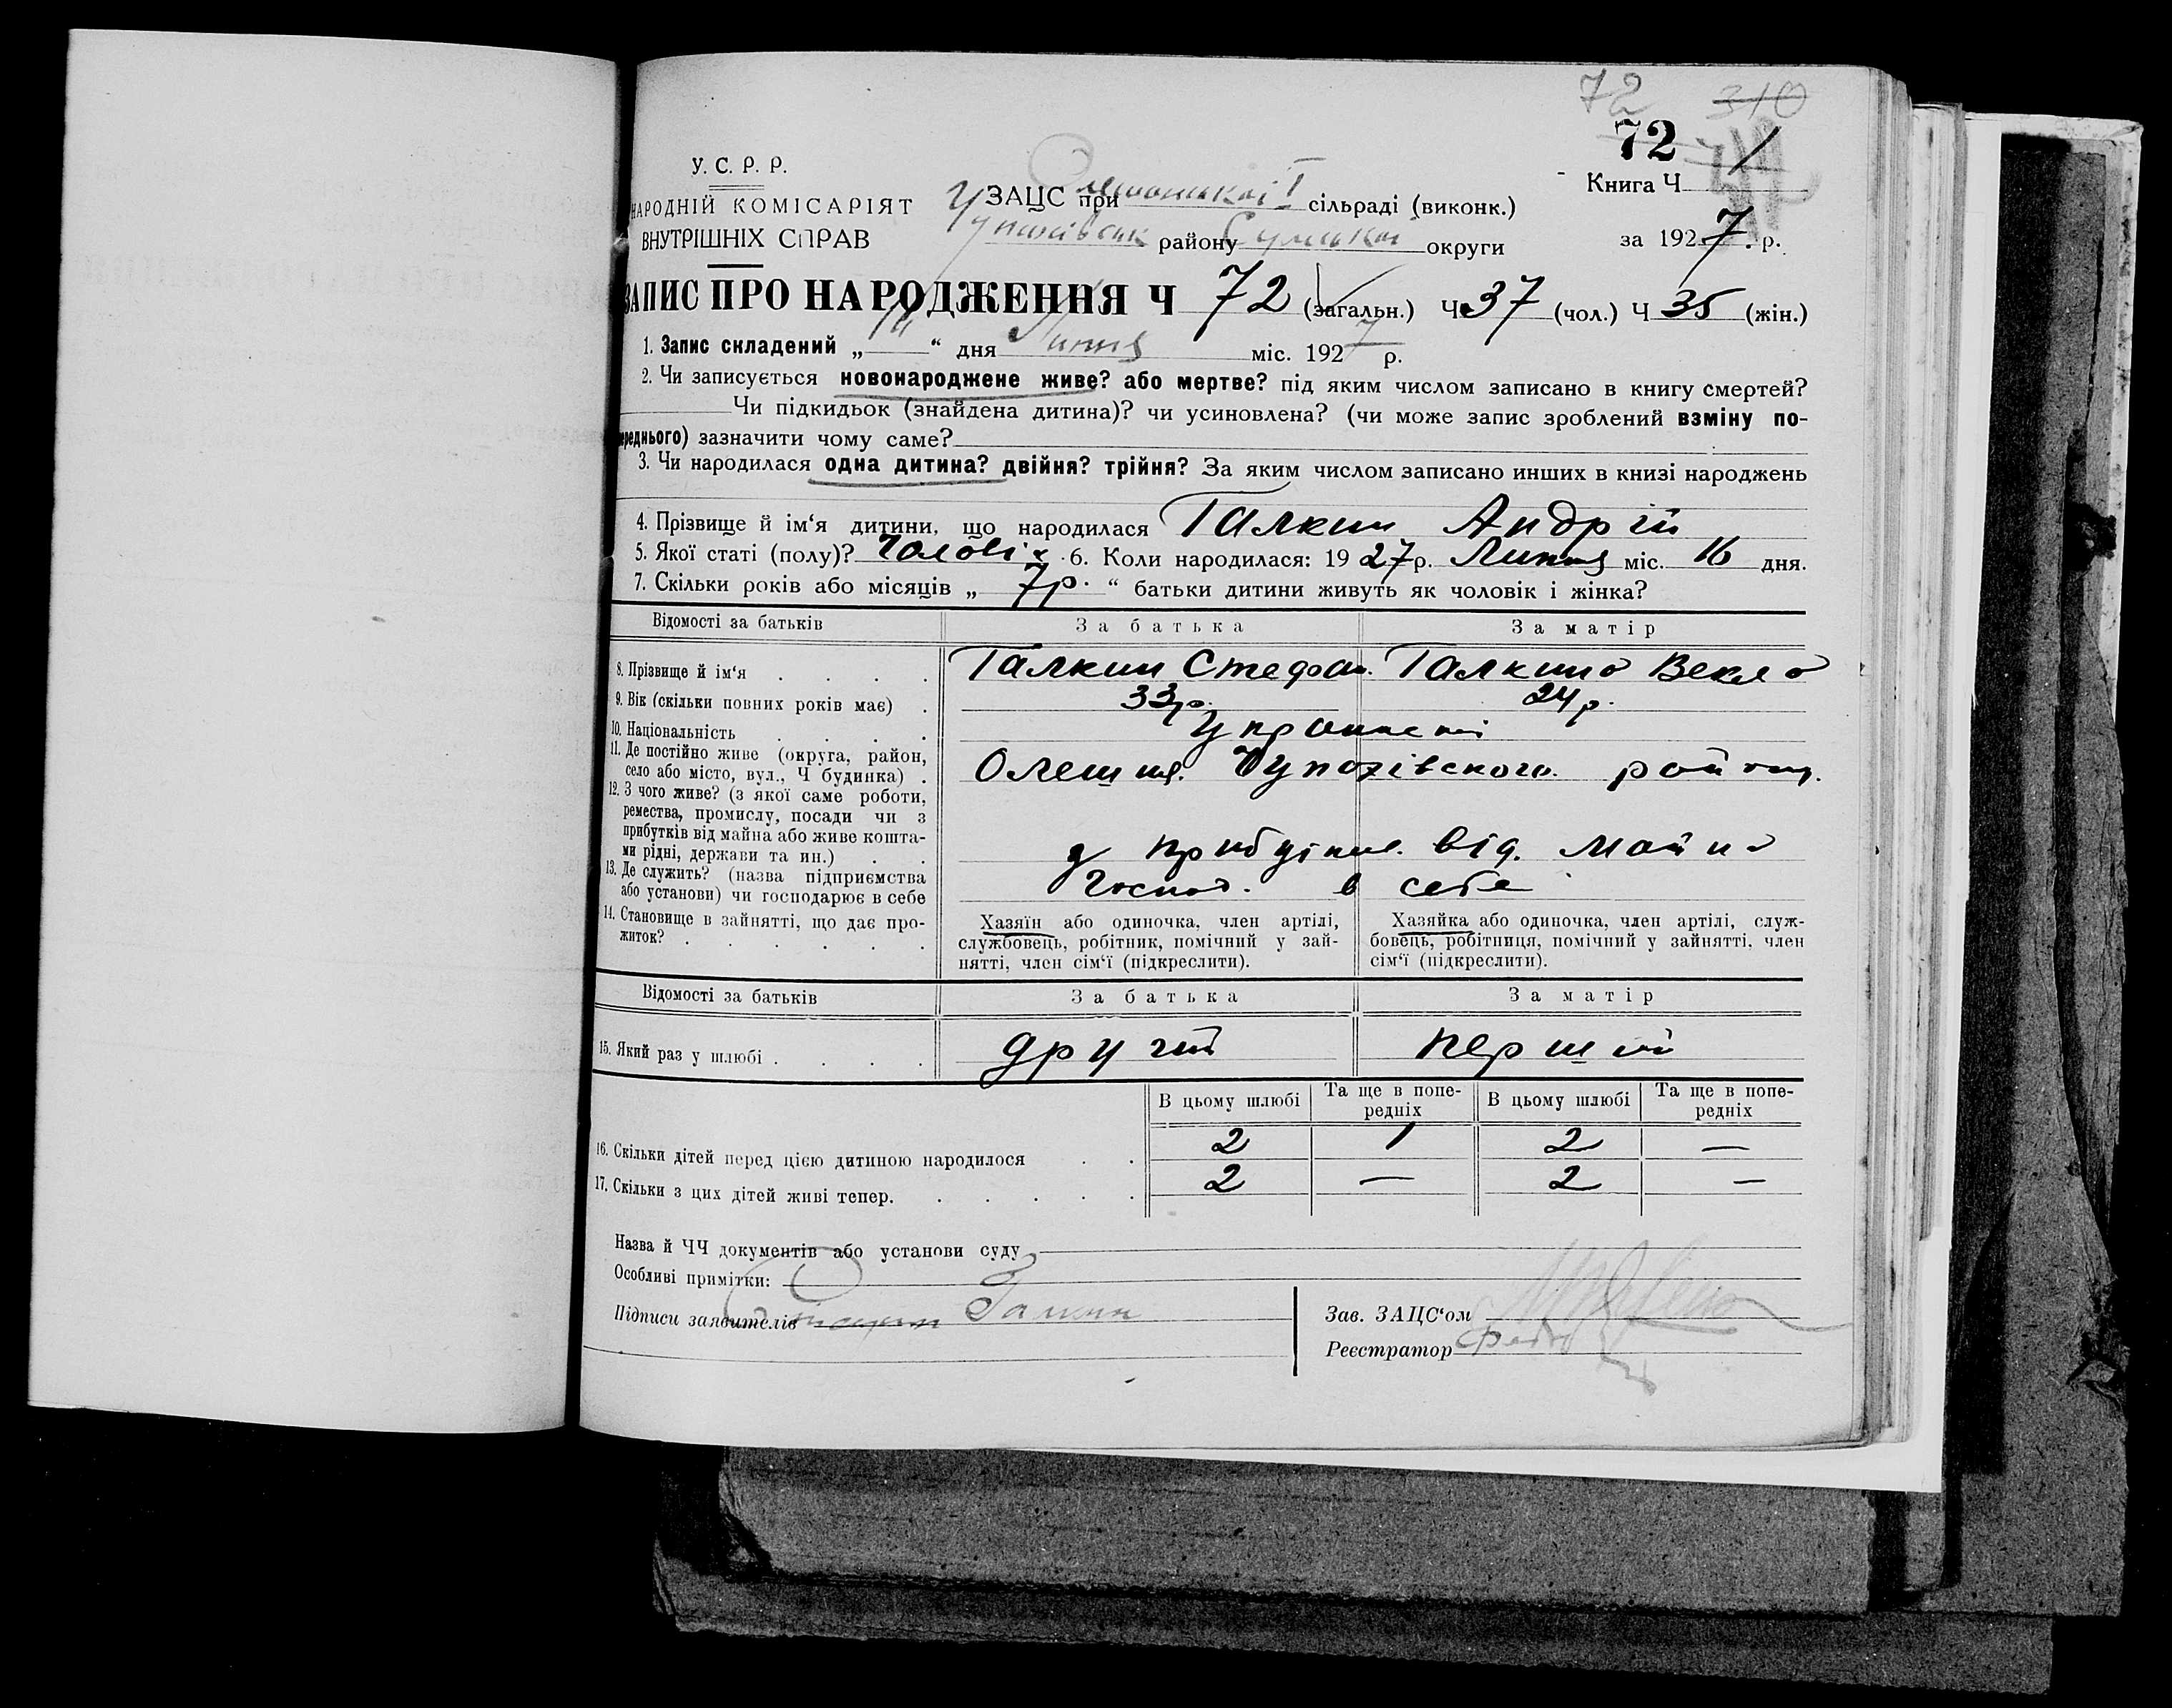 72 310
72 1
У. С. Р. Р.
НАРОДНІЙ КОМІСАРІЯТ
ВНУТРІШНІХ СПРАВ
ЗАЦС при сільраді (виконк.)
району Сумської округи
Книга Ч
за 1927. р.
ЗАПИС ПРО НАРОДЖЕННЯ Ч 72 (загальн.) Ч 37 (чол.) Ч 35 (жін.)
1. Запис складений „ “ дня Липня міс. 1927 р.
2. Чи записується новонароджене живе? або мертве? під яким числом записано в книгу смертей?
Чи підкидьок (знайдена дитина)? чи усиновлена? (чи може запис зроблений взміну по-
ереднього) зазначити чому саме?
3. Чи народилася одна дитина? двійня? трійня? За яким числом записано инших в книзі народжень
4. Прізвище й ім‘я дитини, що народилася Галкин Андрій
5. Якої статі (полу)? Чоловіч 6. Коли народилася: 1927р. Липня міс. 16 дня.
7. Скільки років або місяців „ 7р. “ батьки дитини живуть як чоловік і жінка?
Відомості за батьків За батька За матір
8. Прізвище й ім‘я Галкин Стефан. Галкина Векла
9. Вік (скільки повних років має) 33р. 24р.
10. Національність Українські
11. Де постійно живе (округа, район,
село або місто, вул., Ч будинка) Олешня. Чупахівського району.
12. З чого живе? (з якої саме роботи,
ремества, промислу, посади чи з
прибутків від майна або живе кошта-
ми рідні, держави та ин.) З прибутків від. майна
13. Де служить? (назва підприємства
або установи) чи господарює в себе Господ. в себе
14. Становище в зайнятті, що дає про-
житок?
Хазяїн або одиночка, член артілі,
службовець, робітник, помічний у зай-
нятті, член сім‘ї (підкреслити).
Хазяйка або одиночка, член артілі, служ-
бовець, робітниця, помічний у зайнятті, член
сім‘ї (підкреслити).
Відомості за батьків За батька За матір
15. Який раз у шлюбі другий перший
В цьому шлюбі Та ще в попе-
редніх В цьому шлюбі Та ще в попе-
редніх
16. Скільки дітей перед цією дитиною народилося 2 1 2 —
17. Скільки з цих дітей живі тепер. 2 — 2 —
Назва й ЧЧ документів або установи суду
Особливі примітки:
Підписи заявителів Галкин
Зав. ЗАЦС‘ом
Реєстратор